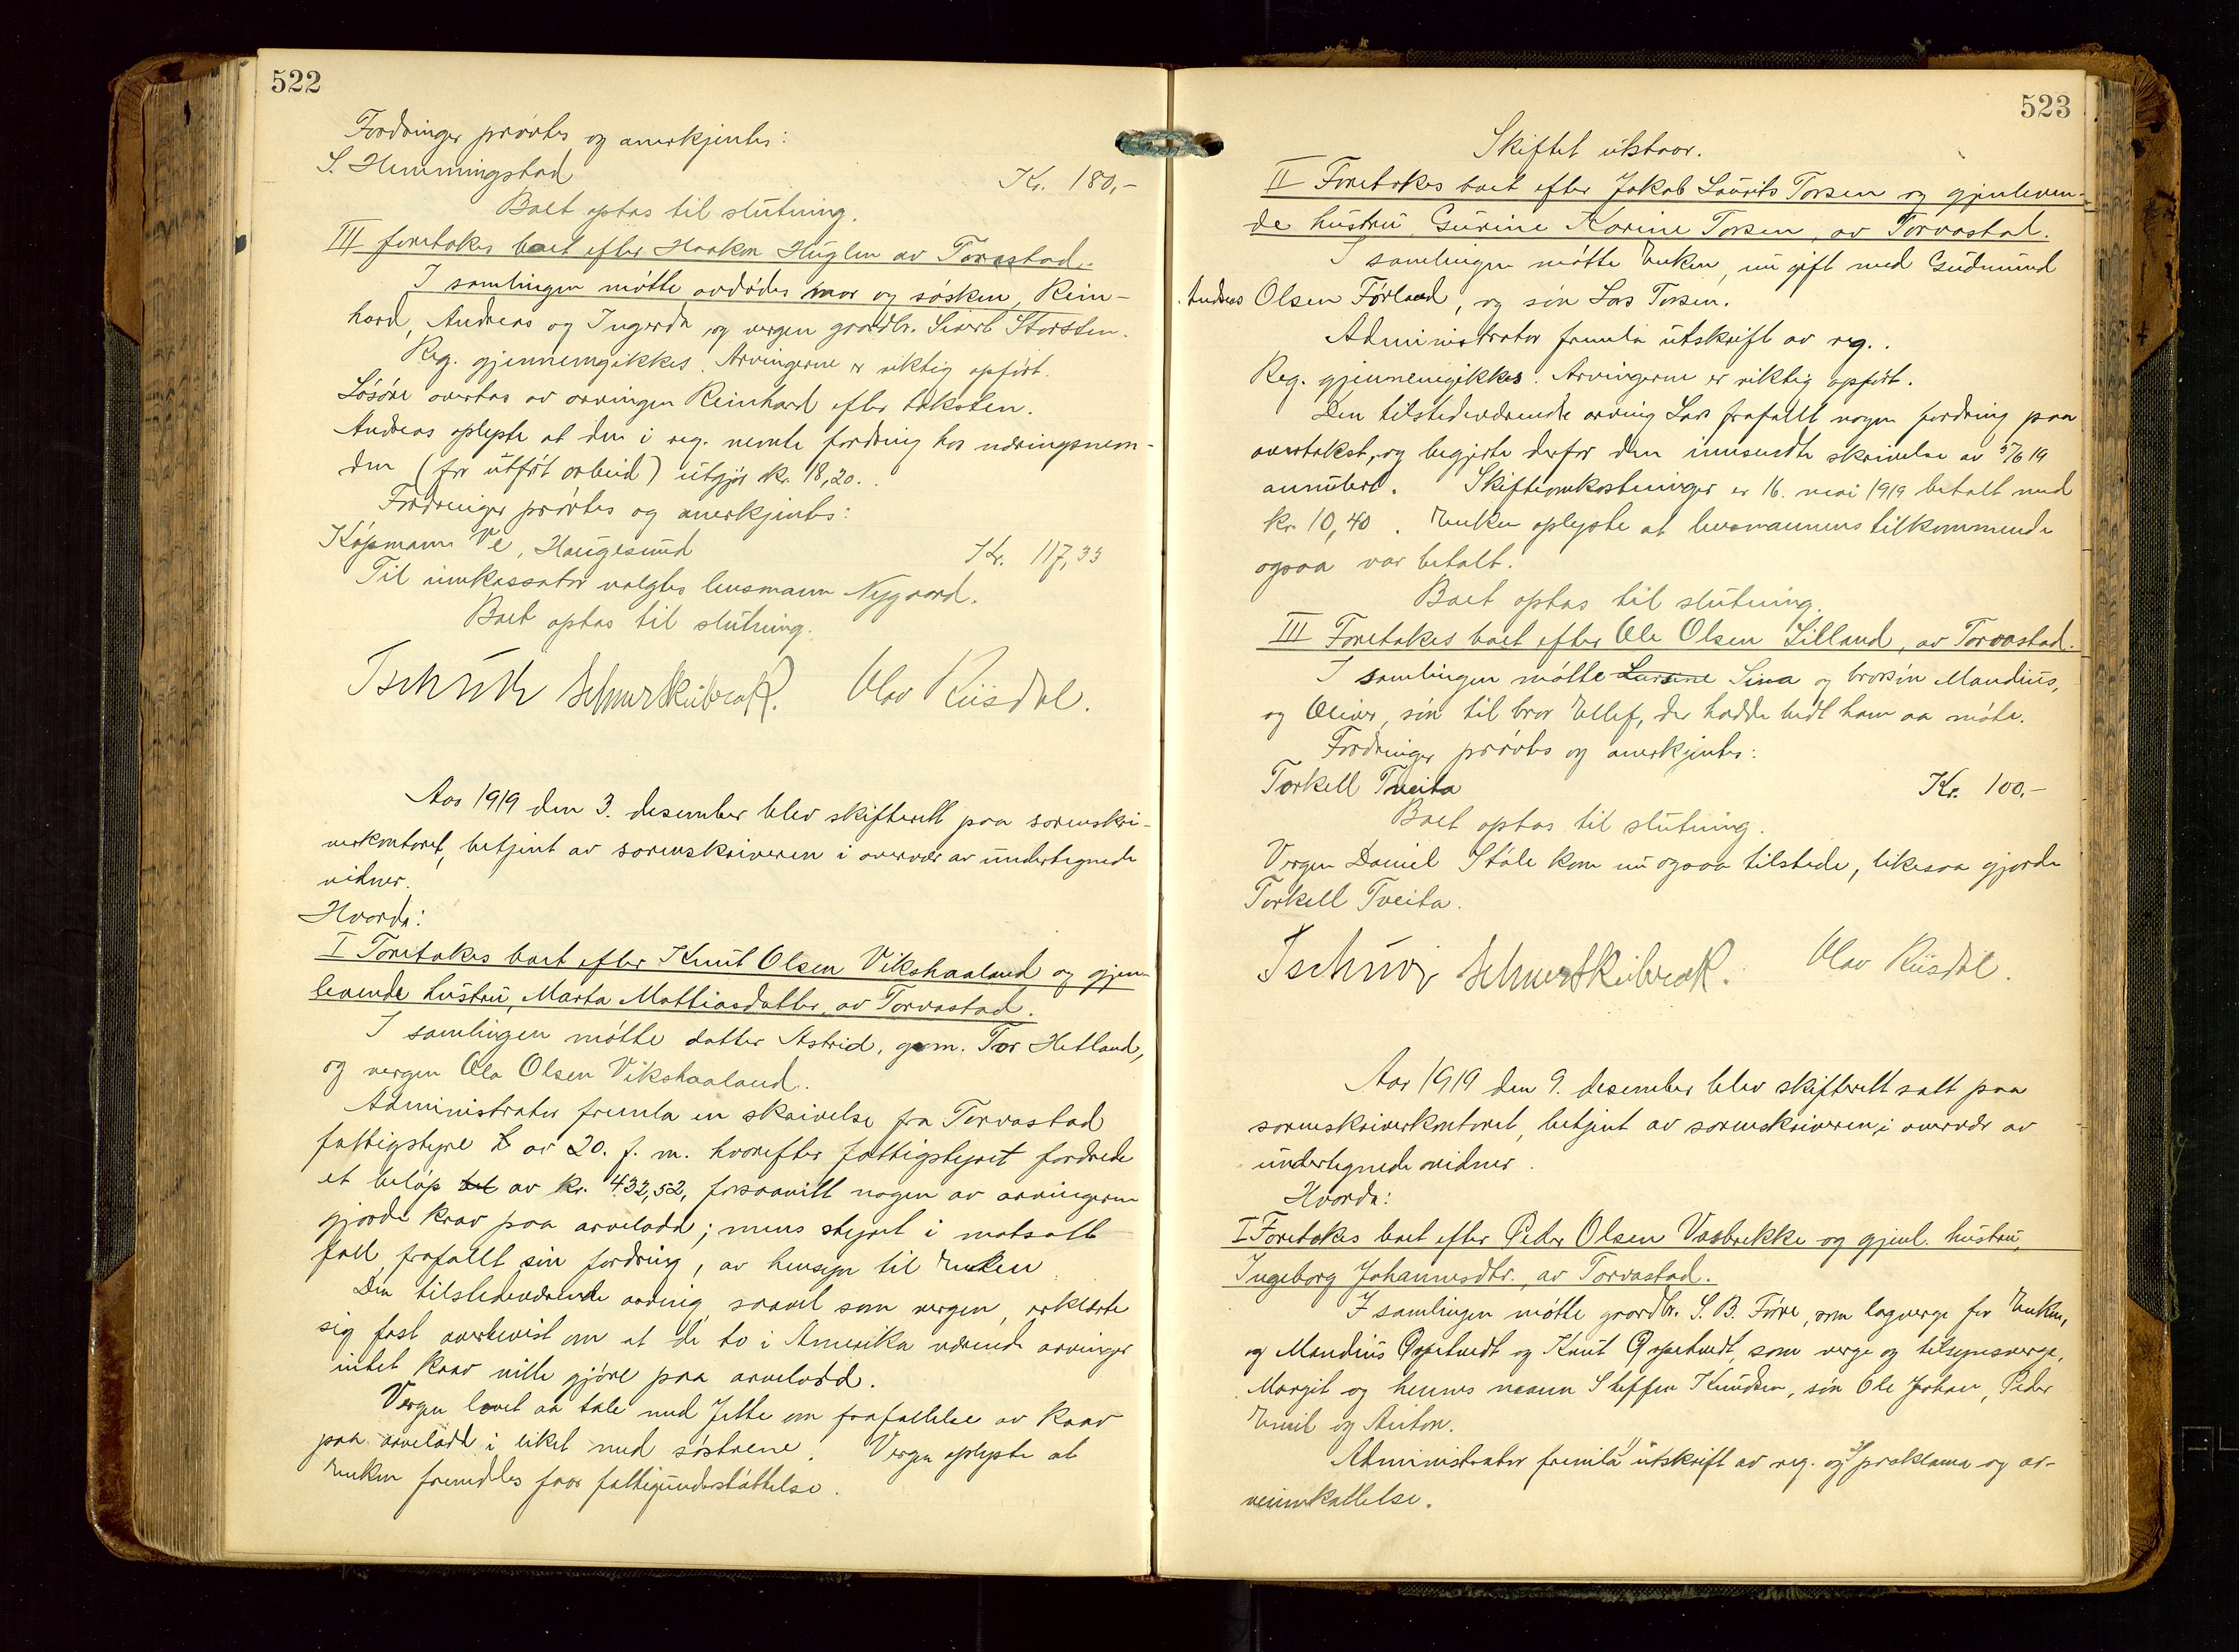 522
Fordringer prøvtes og anerkjentes:
S. Hemmingstad Kr. 180,-
Boet optas til slutning.
III foretakes boet efter Haakon Huglen av Torvastad.
I samlingen møtte avdødes mor og søsken, Rein-
hard, Andreas og Ingerda, og vergen gaardbr. Sivert Storsten.
Reg. gjennemgikkes. Arvingerne er riktig opført.
Løsøre overtas av arvingen Reinhard efter taksten.
Andreas oplyste at den i reg. nemte fordring hos næringsnem-
den (for utført arbeid) utgjør kr. 18,20.
Fordringer prøvtes og anerkjentes:
Kjøpmann Ve, Haugesund Kr. 117,33
Til innkassator valgtes lensmann Nygaard.
Boet optas til slutning.
Olav Riisdal.
Aar 1919 den 3. desember blev skifterett paa sorenskri-
verkontoret, betjent av sorenskriveren i overvær av undertegnede
vidner.
Hvorda:
I Foretakes boet efter Knut Olsen Vikshaaland og gjen-
levende hustru, Marta Mattiasdatter, av Torvastad.
I samlingen møtte datter Astrid, g. m. Tor Hetland,
og vergen Ola Olsen Vikshaaland.
Administrator fremla en skrivelse fra Torvastad
fattigstyre av 20. f. m. hvorefter fattigstyret fordrede
et beløp av kr. 432,52, forsaavitt nogen av arvingerne
gjorde krav paa arvelodd; mens styret i motsatt
fall frafallt sin fordring, av hensyn til Enken.
Den tilstedeværende arving saavel som vergen, erklærte
sig fast overbevist om at de to i Amerika værende arvinger
intet krav ville gjøre paa arvelodd.
Vergen lovet aa tale med Jette om frafallelse av krav
paa arvelodd i likhet med søstrene. Vergen oplyste at
Enken fremdeles faar fattigunderstøttelse.
523
Skiftet utstaar.
II Foretakes boet efter Jakob Laurits Torsen og gjenleven-
de hustru Gurine Karine Torsen, av Torvastad.
I samlingen møtte Enken, nu gift med Gudmund
Andreas Olsen Førland, og søn Lars Torsen.
Administrator fremla utskrift av reg..
Reg. gjennemgikkes. Arvingerne er riktig opført.
Den tilstedeværende arving Lars frafallt nogen fordring paa
overtakst, og begjærte derfor den innsendte skrivelse av 5/6 19
annulert. Skifteomkostninger er 16. mai 1919 betalt med
kr. 10,40. Enken oplyste at lensmannens tilkommende
ogsaa var betalt.
Boet optas til slutning.
III Foretakes boet efter Ole Olsen Lilland, av Torvastad.
I samlingen møtte Lursine Sina og brorsøn Mandius,
og Oliver, søn til bror Ellef, der hadde bedt ham aa møte.
Fordringer prøvtes og anerkjentes:
Torkell Tveita Kr. 100.-
Boet optas til slutning.
Vergen Daniel Ståle kom nu ogsaa tilstede, likesaa gjorde
Torkell Tveita.
Olav Riisdal.
Aar 1919 den 9. desember blev skifterett satt paa
sorenskriverkontoret, betjent av sorenskriveren, i overvær av
undertegnede vidner.
Hvorda:
I Foretakes boet efter Peder Olsen Vasbrekke og gjenl. hustru,
Ingeborg Johannesdtr., av Torvastad.
I samlingen møtte gaardbr. S. B. Førre, som lagverge for Enken,
og Mandius Oppetvedt og Knut Oppetvedt, som verge og tilsynsverge,
Margit og hennes mann Steffen Knudsen, søn Ole Johan, Peder
Emil og Anton.
Administrator fremla 1) utskrift av reg. og 2) proklama og ar-
veinnkallelse.